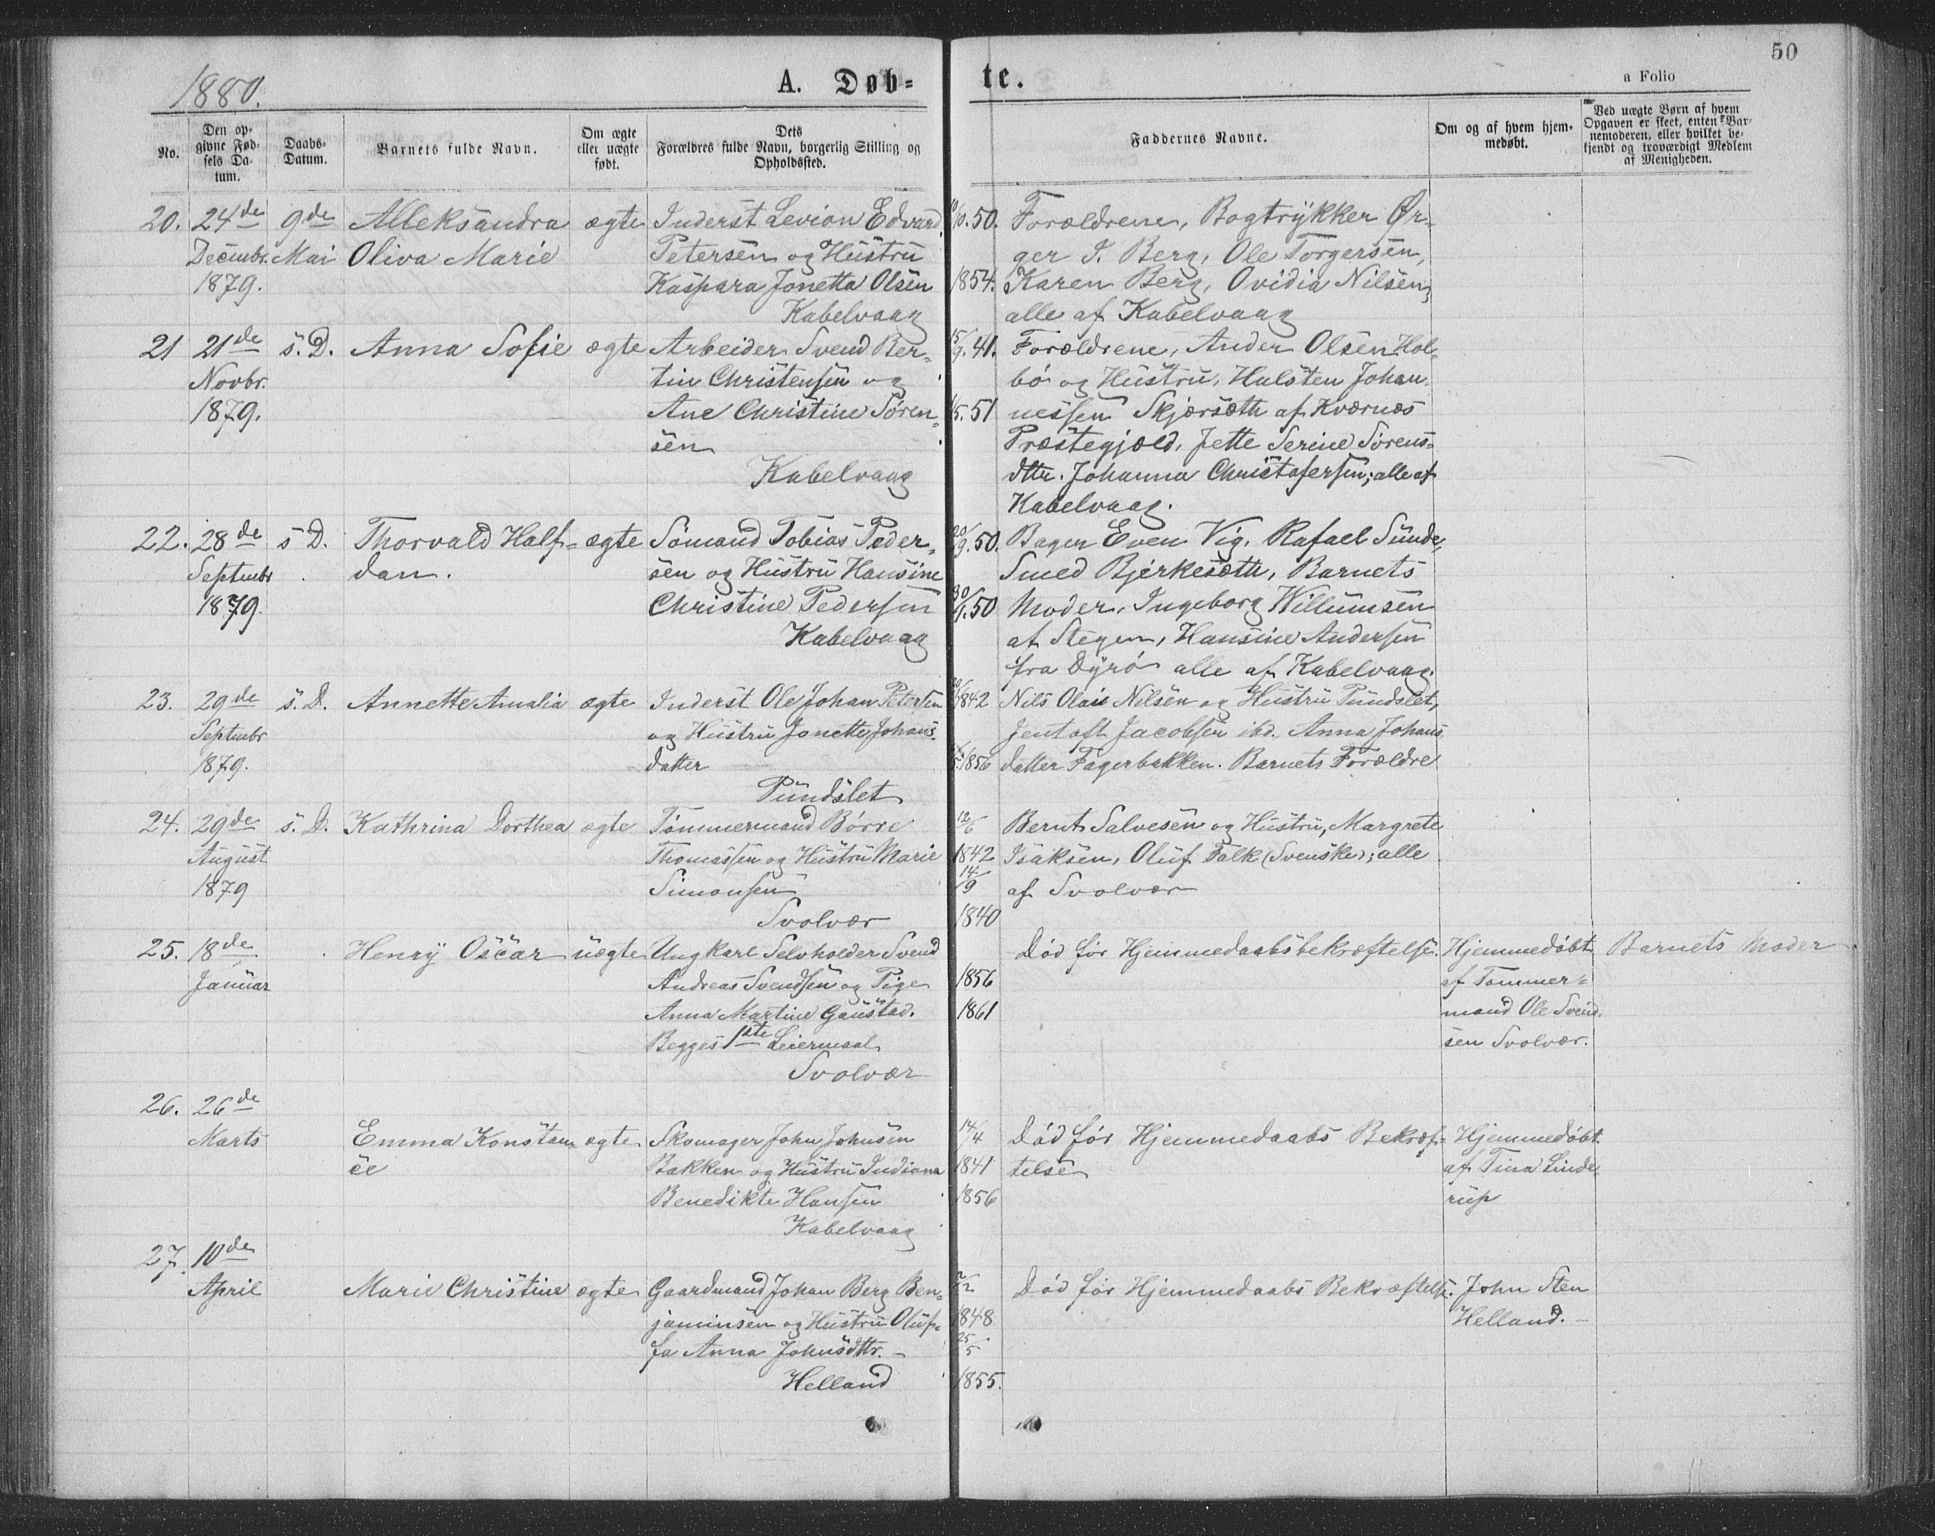 1880.
A. Døb-
te.
50
a Folio
No.
Den op-
givne Fød-
sels Da-
tum.
Daabs-
Datum.
Barnets fulde Navn.
Om ægte
eller uægte
født.
Dets
Forældres fulde Navn, borgerlig Stilling og
Opholdssted.
Faddernes Navne.
Om og af hvem hjem-
medøbt.
Ved uægte Børn af hvem
Opgaven er skeet, enten Bar-
nemoderen, eller hvilket be-
kjendt og troværdigt Medlem
af Menigheden.
20.
24de
Decembr.
1879.
9de
Mai
Alleksandra
Oliva Marie
ægte
Inderst Levion Edvard
Petersen og Hustru
Kaspara Jonetta Olsen
Kabelvaag
50.
1854.
Forældrene, Bogtrykker Ør-
ger I. Berg, Ole Torgersen,
Karen Berg, Ovidia Nilsen;
alle af Kabelvaag
21
21de
Novbr.
1879.
s. D.
Anna Sofie
ægte
Arbeider Svend Ber-
tin Christensen og
Ane Christine Sören-
sen
Kabelvaag
15/9. 41.
/5. 51
Forældrene, Ander Olsen Hol-
bö og Hustru, Halsten Johan-
nessen Skjærsæth af Kværnæs
Præstegjæld, Jette Serine Sörens-
dttr. Johanna Christofersen; alle af
Kabelvaag.
22.
28de
Septembr
1879.
s D.
Thorvald Half-
dan.
ægte
Sömand Tobias Peder-
sen og Hustru Hansine
Christine Pedersen
Kabelvaag
20/9. 50.
50
Bager Even Vig, Rafael Sunde,
Smed Bjerkesæth, Barnets
Moder, Ingeborg Willumsen
af Stegen, Hansine Andersen
fra Dyrö alle af Kabelvaag.
23.
29de
Septembr
1879.
s. D.
Annette Amalia
ægte
Inderst Ole Johan Petersen
og Hustru Jonette Johans-
datter
Pundslet
1842
1856
Nils Olai Nilsen og Hustru Pundslet,
Jentoft Jacobsen ibd. Anna Johans
datter Fagerbakken. Barnets Forældre
24.
29de
August
1879
s. D.
Kathrina Dorthea
ægte
Tömmermand Börre
Thomassen og Hustru Marie
Simonsen
Svolvær
12/6
1842
14/9
1840
Bernt Salvesen og Hustru, Margrete
Isaksen, Oluf Falk (Svenske); alle
af Svolvær
25.
18de
Januar
Henry Oscar
uægte
Ungkarl Selvholder Svend
Andreas Svendsen og Pige
Anna Martine Gaustad.
Begges 1ste Leiermaal
Svolvær
1856
1861
Död för Hjemmedaabsbekræftelse.
Hjemmedöbt
af Tømmer-
mand Ole Svend-
sen Svolvær.
Barnets Moder
26.
26de
Marts
Emma Konstan-
ce
ægte
Skomager John Johnsen
Bakken og Hustru Indiana
Benedikte Hansen
Kabelvaag
14/4
1841
1856
Död för Hjemmedaabs Bekræf-
telse
Hjemmedöbt
af Tina Linde
rup
27.
10de
April
Marie Christine
ægte
Gaardmand Johan Berg Ben-
jaminsen og Hustru Oluf-
fa Anna Johnsdttr. -
Helland
2/2
1848
25/5
1855.
Död för Hjemmedaabs Bekræftelse.
John Sten
Helland. -